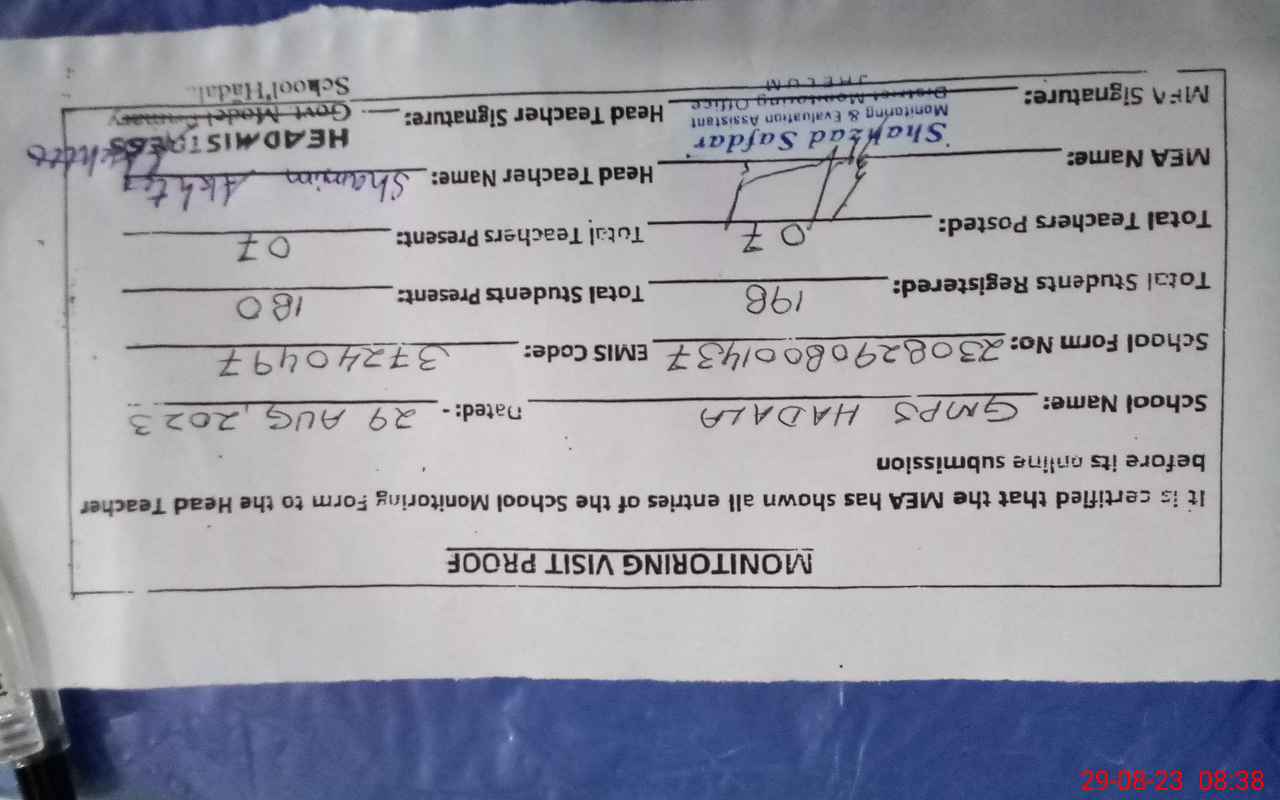 MONITORING VISIT PROOF
It is certified that the MEA has shown all entries of the School Monitoring Form to the Head Teacher
before its online submission
School Name: GMPS HADALA Dated: - 29 AUG, 2023
School Form No: 23082908001437 EMIS Code: 37240497
Total Students Registered: 198 Total Students Present: 180
Total Teachers Posted: 07 Total Teachers Present: 07
MEA Name: Head Teacher Name: Shamim Akhter
Shahzad Safdar
Monitoring & Evaluation Assistant
District Monitoring Office
JHELUM
MEA Signature: Head Teacher Signature:
HEADMISTRESS
Govt. Model Primary
School Hadala
29-08-23 08:38